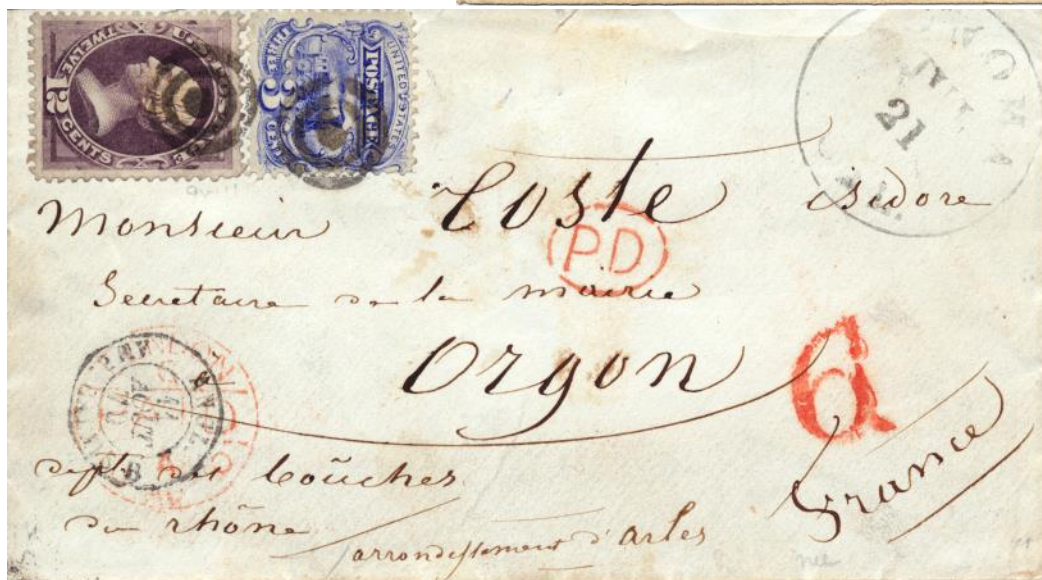 TWELVE
12
CENTS
UNITED STATES
POSTAGE
3
THREE
CENTS
JUL
21
CAL.
Monsieur Coste isidore
P.D
Secretaire de la mairie
Orgon
6
AOUT
dept des boûches
du rhône
France
arrondissement d'arles